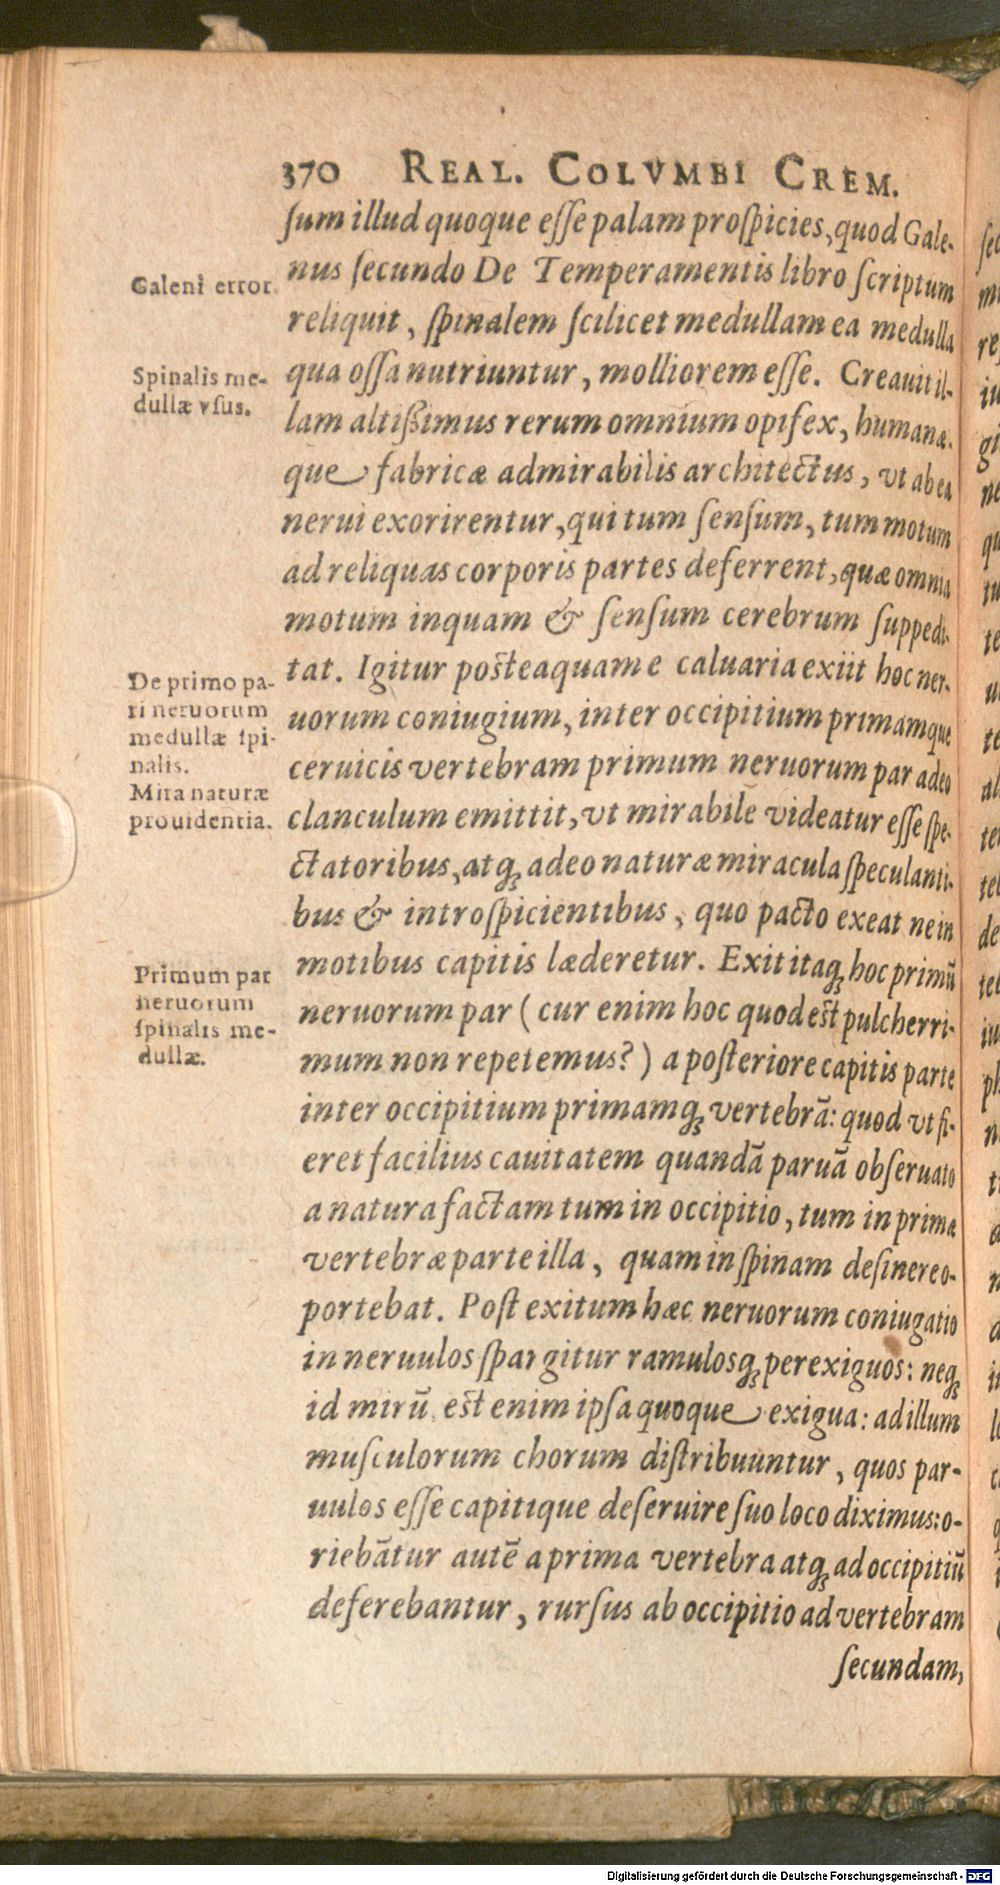 370 REAL. COLVMBI CREM.
ſum illud quoque eſſe palam proſpicies, quod Gale-
nus ſecundo De Temperamentis libro ſcriptum
reliquit, ſpinalem ſcilicet medullam ea medulla
qua oſſa nutriuntur, molliorem eſſe. Creauit il-
lam altißimus rerum omnium opifex, humanæ-
que fabricæ admirabilis architectus, vt ab ea
nerui exorirentur, qui tum ſenſum, tum motum
ad reliquas corporis partes deferrent, quæ omnia
motum inquam & ſenſum cerebrum ſuppedi-
tat. Igitur poſteaquam e caluaria exiit hoc ner-
uorum coniugium, inter occipitium primamque
ceruicis vertebram primum neruorum par adeo
clanculum emittit, vt mirabile videatur eſſe ſpe-
ctatoribus, atq; adeo naturæ miracula ſpeculanti-
bus & introſpicientibus, quo pacto exeat ne in
motibus capitis læderetur. Exit itaq; hoc primũ
neruorum par (cur enim hoc quod eſt pulcherri-
mum non repetemus?) a poſteriore capitis parte
inter occipitium primamq; vertebrã: quod vt fi-
eret facilius cauitatem quandã paruã obſeruato
a natura factam tum in occipitio, tum in primæ
vertebræ parte illa, quam in ſpinam deſinere o-
portebat. Poſt exitum hæc neruorum coniugatio
in neruulos ſpargitur ramulosq; perexiguos: neq;
id mirũ, eſt enim ipſa quoque exigua: ad illum
muſculorum chorum diſtribuuntur, quos par-
uulos eſſe capitique deſeruire ſuo loco diximus: o-
riebãtur autẽ a prima vertebra atq; ad occipitiũ
deferebantur, rurſus ab occipitio ad vertebram
ſecundam,
Galeni error.
Spinalis me-
dullæ vſus.
De primo pa-
ri neruorum
medullæ ſpi-
nalis.
Mira naturæ
prouidentia.
Primum par
neruorum
ſpinalis me-
dullæ.
Digitalisierung gefördert durch die Deutsche Forschungsgemeinschaft - DFG